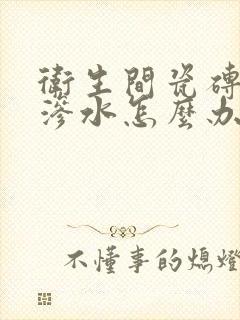 衛生間瓷磚
滲水怎麼办
不懂事的熄燈